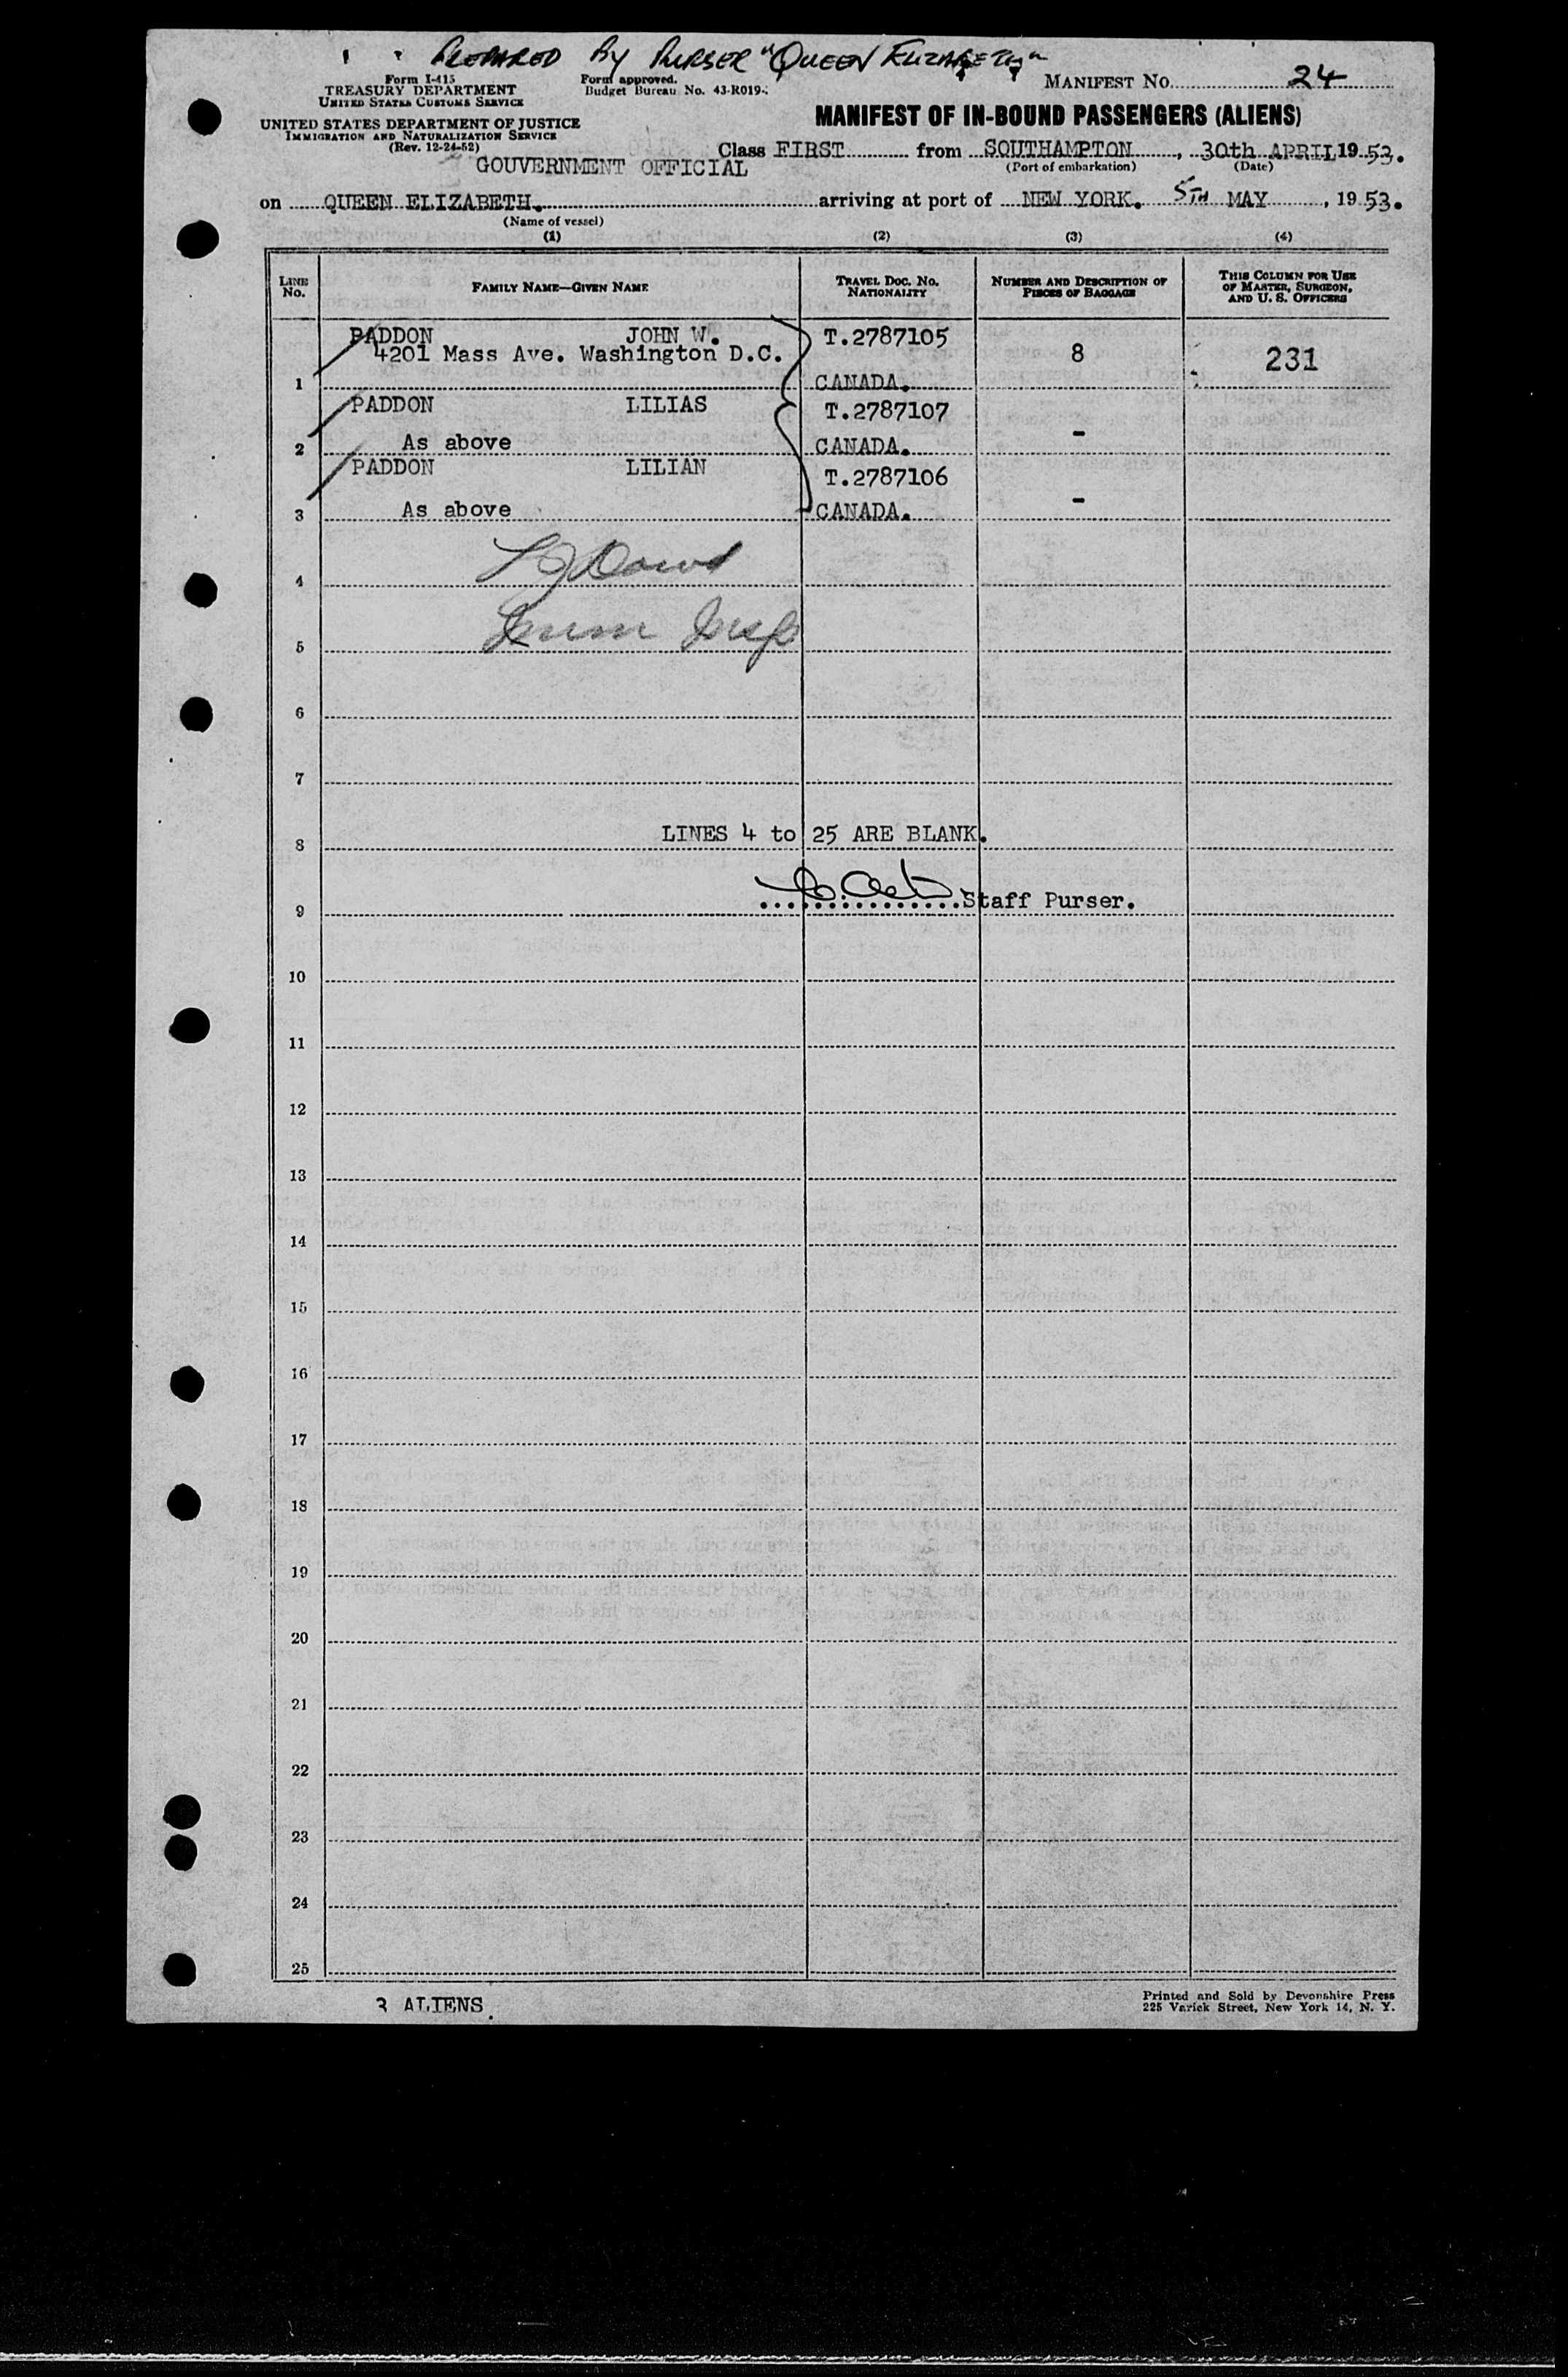 PREPARED By PURSER "QUEEN ELIZABETH"
Form I-415
TREASURY DEPARTMENT
UNITED STATES CUSTOMS SERVICE
UNITED STATES DEPARTMENT OF JUSTICE
IMMIGRATION AND NATURALIZATION SERVICE
(Rev. 12-24-52)
Form approved.
Budget Bureau No. 43-R019-
MANIFEST NO. 24
MANIFEST OF IN-BOUND PASSENGERS (ALIENS)
GOUVERNMENT OFFICIAL
Class FIRST from SOUTHAMPTON, 30th APRIL 1953.
(Port of embarkation) (Date)
on QUEEN ELIZABETH. arriving at port of NEW YORK. 5TH MAY, 1953.
(Name of vessel)
(1) (2) (3) (4)
LINE NO.
FAMILY NAME—GIVEN NAME
TRAVEL DOC. NO. NATIONALITY
NUMBER AND DESCRIPTION OF PIECES OF BAGGAGE
THIS COLUMN FOR USE OF MASTER, SURGEON, AND U. S. OFFICERS
PADDON JOHN W. T.2787105
4201 Mass Ave. Washington D.C. 8 231
1 CANADA.
PADDON LILIAS T.2787107
2 As above CANADA. -
PADDON LILIAN T.2787106
3 As above CANADA. -
4
Immn Insp
5
6
7
LINES 4 to 25 ARE BLANK.
8
Staff Purser.
9
10
11
12
13
14
15
16
17
18
19
20
21
22
23
24
25
3 ALIENS.
Printed and Sold by Devonshire Press
225 Varick Street, New York 14, N. Y.